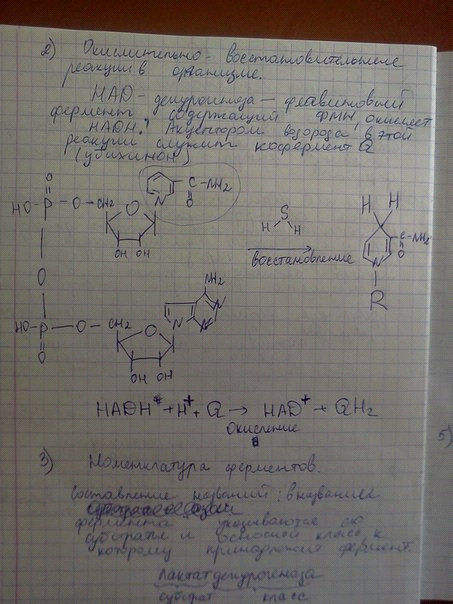 2) Окислительно - восстановительные
реакции в организме.
НАД - дегидрогиноза - флавиновый
фермент содержащий ФМН, окисляет
НАДН. Акцептором водорода в этой
реакции служит кофермент Q
(убихинон)
O
HO-P-O-CH2
O
N
C-NH2
O
OH OH
O
S
H H
восстановление
H H
C-NH2
O
N
R
NH2
HO-P-O-CH2
O
O
N
N
OH OH
НАДН + H+ + Q → НАД+ + QH2
Окисление
3) Номенклатура ферментов.
Составление названий: в название
фермента указывается по
субстрат и основной класс к
которому принадлежит фермент.
Лактатдегидрогеноза
субстрат класс
5)